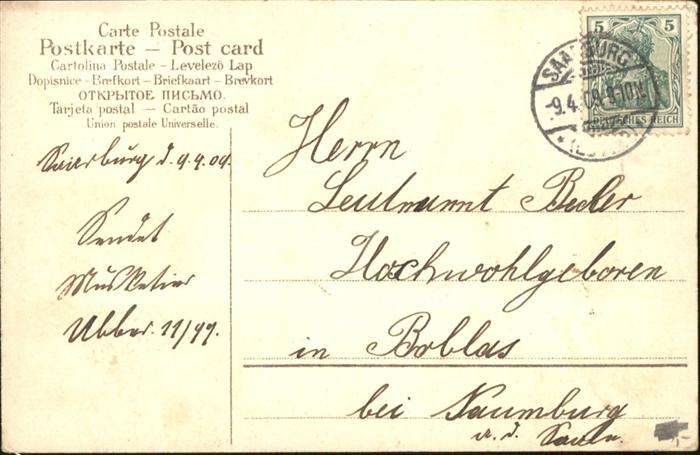 Carte Postale
Postkarte – Post card
Cartolina Postale – Levelező Lap
Dopisnice – Brefkort – Briefkaart – Brevkort
ОТКРЫТОЕ ПИСЬМО.
Tarjeta postal – Cartão postal
Union postale Universelle.
5 5
DEUTSCHES REICH
SAARBURG
-9.4.09.
Saarburg d. 9.4.09.
Sendet
Musketier
11/97.
Herrn
Leutnant Becker
Hochwohlgeboren
in Boblas
bei Naumburg
a. d. Saale.